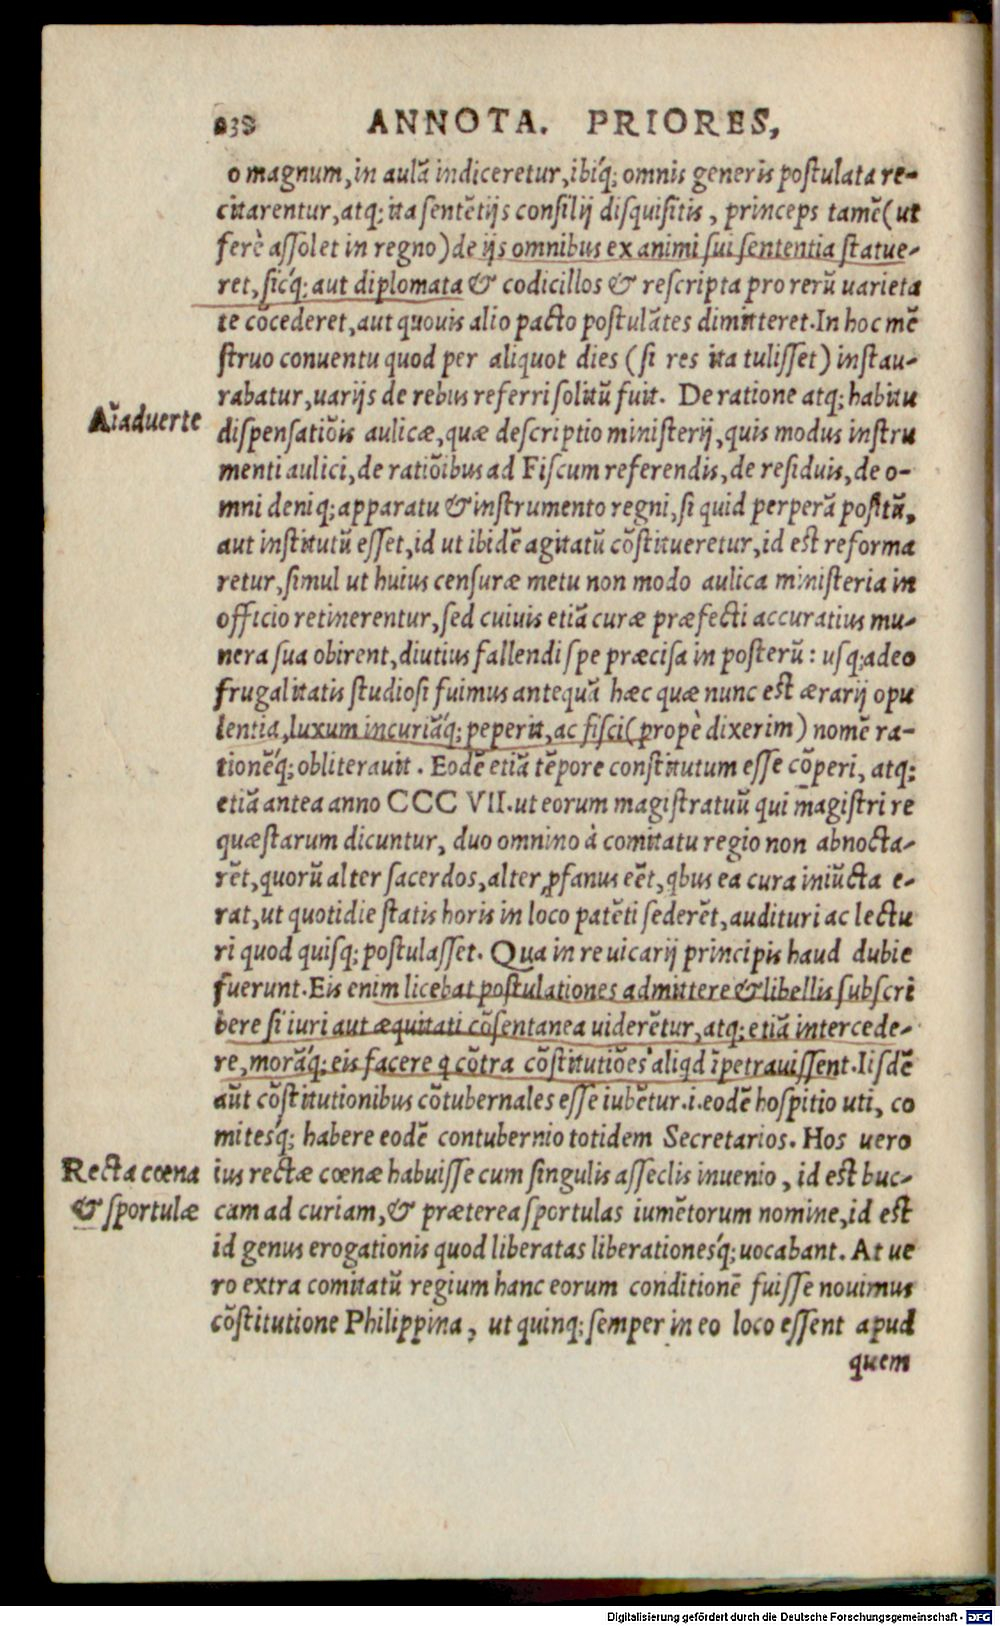 238 ANNOTA. PRIORES,
o magnum, in aulā indiceretur, ibiq́; omnis generis postulata re-
citarentur, atq; ita sentētijs consilij disquisitis, princeps tamē (ut
ferè assolet in regno) de ijs omnibus ex animi sui sententia statue-
ret, sicq́; aut diplomata & codicillos & rescripta pro rerū uarieta
te cōcederet, aut quouis alio pacto postulātes dimitteret. In hoc mē
struo conuentu quod per aliquot dies (si res ita tulisset) instau-
rabatur, uarijs de rebus referri solitū fuit. De ratione atq; habitu
Aīaduerte
dispensatiōis aulicæ, quæ descriptio ministerij, quis modus instru
menti aulici, de ratiōibus ad Fiscum referendis, de residuis, de o-
mni deniq; apparatu & instrumento regni, si quid perperā positū,
aut institutū esset, id ut ibidē agitatū cōstitueretur, id est reforma
retur, simul ut huius censuræ metu non modo aulica ministeria in
officio retinerentur, sed cuiuis etiā curæ præfecti accuratius mu-
nera sua obirent, diutius fallendi spe præcisa in posterū: usq; adeo
frugalitatis studiosi fuimus antequā hæc quæ nunc est ærarij opu
lentia, luxum incuriāq́; peperit, ac fisci (propè dixerim) nomē ra-
tionēq́; obliterauit. Eodē etiā tēpore constitutum esse cōperi, atq;
etiā antea anno CCC VII. ut eorum magistratuū qui magistri re
quæstarum dicuntur, duo omnino à comitatu regio non abnocta-
rēt, quorū alter sacerdos, alter ꝓfanus eēt, qbus ea cura iniūcta e-
rat, ut quotidie statis horis in loco patēti sederēt, audituri ac lectu
ri quod quisq; postulasset. Qua in re uicarij principis haud dubie
fuerunt. Eis enim licebat postulationes admittere & libellis subscri
bere si iuri aut æquitati cōsentanea uiderētur, atq; etiā intercede-
re, morāq́; eis facere q cōtra cōstitutiōes aliqd īpetrauissent. Iisdē
aūt cōstitutionibus cōtubernales esse iubētur .i. eodē hospitio uti, co
mitesq́; habere eodē contubernio totidem Secretarios. Hos uero
Recta cœna
& sportulæ
ius rectæ cœnæ habuisse cum singulis asseclis inuenio, id est buc-
cam ad curiam, & præterea sportulas iumētorum nomine, id est
id genus erogationis quod liberatas liberationesq́; uocabant. At ue
ro extra comitatū regium hanc eorum conditionē fuisse nouimus
cōstitutione Philippina, ut quinq; semper in eo loco essent apud
quem
Digitalisierung gefördert durch die Deutsche Forschungsgemeinschaft - DFG